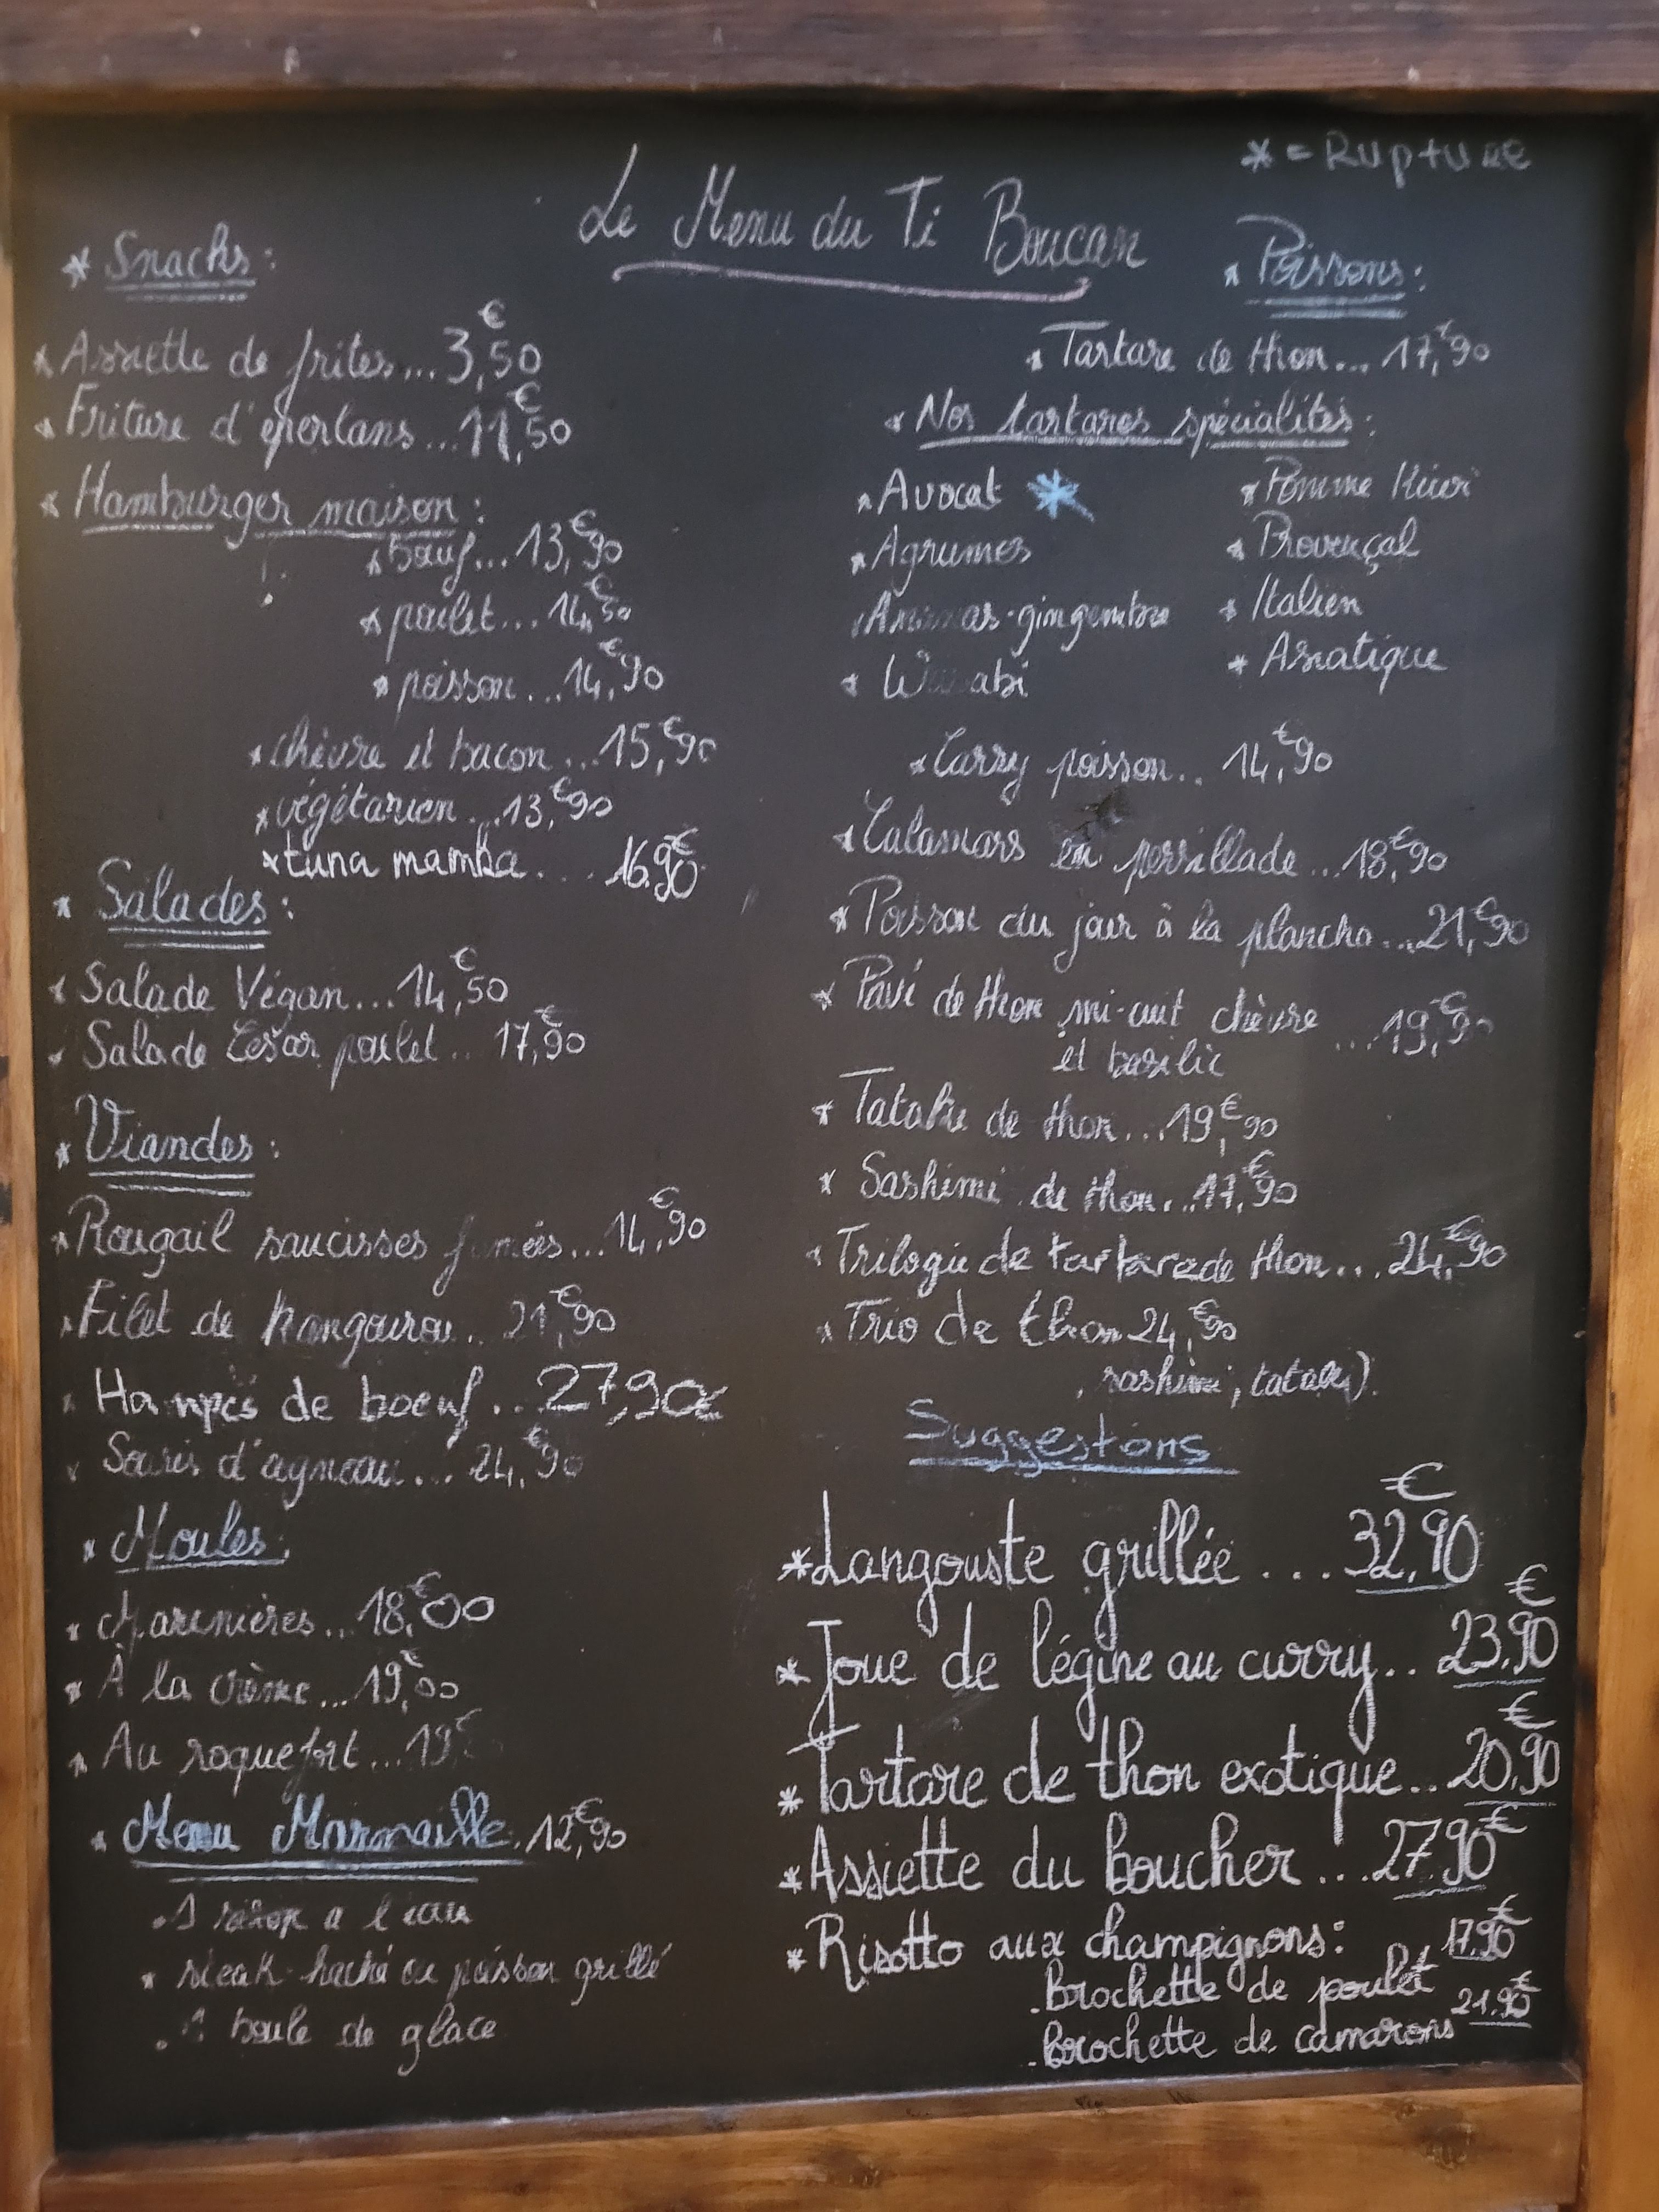 * = Rupture
Le Menu du Ti Boucan
* Snacks :
* Assiette de frites... 3,50 €
* Friture d'éperlans... 11,50 €
* Hamburger maison :
* bœuf... 13,90 €
* poulet... 14,50 €
* poisson... 14,90 €
* chèvre et bacon... 15,90 €
* végétarien... 13,90 €
* tuna mamba.... 16.90 €
* Salades :
* Salade Végan... 14,50 €
* Salade César poulet.. 17,90 €
* Viandes :
* Rougail saucisses fumées... 14,90 €
* Filet de kangourou.. 21,90 €
* Hampes de boeuf... 27,90 €
* Souris d'agneau... 24,90 €
* Moules :
* Marinières... 18,00 €
* À la crème... 19,00 €
* Au roquefort... 19 €
* Menu Marmaille. 12,90 €
. 1 sirop a l'eau
* steak haché ou poisson grillé
. 1 boule de glace
* Poissons :
* Tartare de thon... 17,90 €
* Nos tartares spécialités :
* Avocat * * Pomme Kiwi
* Agrumes * Provençal
Ananas-gingembre * Italien
* Wasabi * Asiatique
* Carry poisson.. 14,90 €
* Calamars en persillade... 18,90 €
* Poisson du jour à la plancha... 21,90 €
* Pavé de thon mi-cuit chèvre ... 19,90 €
et basilic
* Tataki de thon... 19,90 €
* Sashimi de thon... 17,90 €
* Trilogie de tartare de thon... 24,90 €
* Trio de thon 24,90 €
, sashimi, tataki).
Suggestions
* Langouste grillée .... 32,90 €
* Joue de légine au curry.. 23,90 €
* Tartare de thon exotique.. 20,90 €
* Assiette du boucher ... 27.90 €
* Risotto aux champignons :
. brochette de poulet 17.90 €
. brochette de camarons 21.90 €